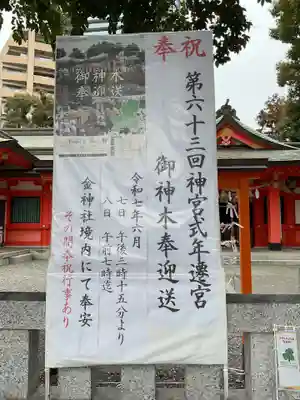 奉祝
第六十三回神宮式年遷宮
御神木奉迎送
令和七年六月
七日 午後二時十五分より
八日 午前七時迄
金神社境内にて奉安
その間奉祝行事あり
御神木
奉迎送